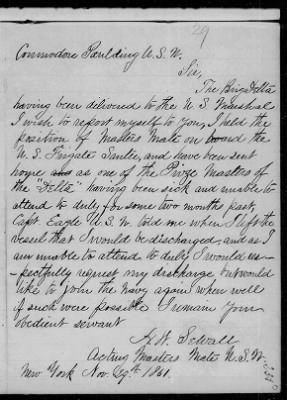 29
Commodore Paulding U.S.N.
Sir,
The Brig Delta
having been delivered to the U.S. Marshal
I wish to report myself to you, I held the
position of Masters Mate on board the
U.S. Frigate Santee, and have been sent
home as as one of the Prize Masters of
the "Delta" having been sick and unable to
attend to duty for some two months past,
Capt. Eagle U.S.N. told me when I left the
vessel that I would be discharged, and as I
am unable to attend to duty I would res-
-pectfully request my discharge but would
like to join the Navy again when well
if such were possible I remain your
obedient servant
H. Sewall
Acting Masters Mate U.S.N.
New York Nov. 29th 1861.